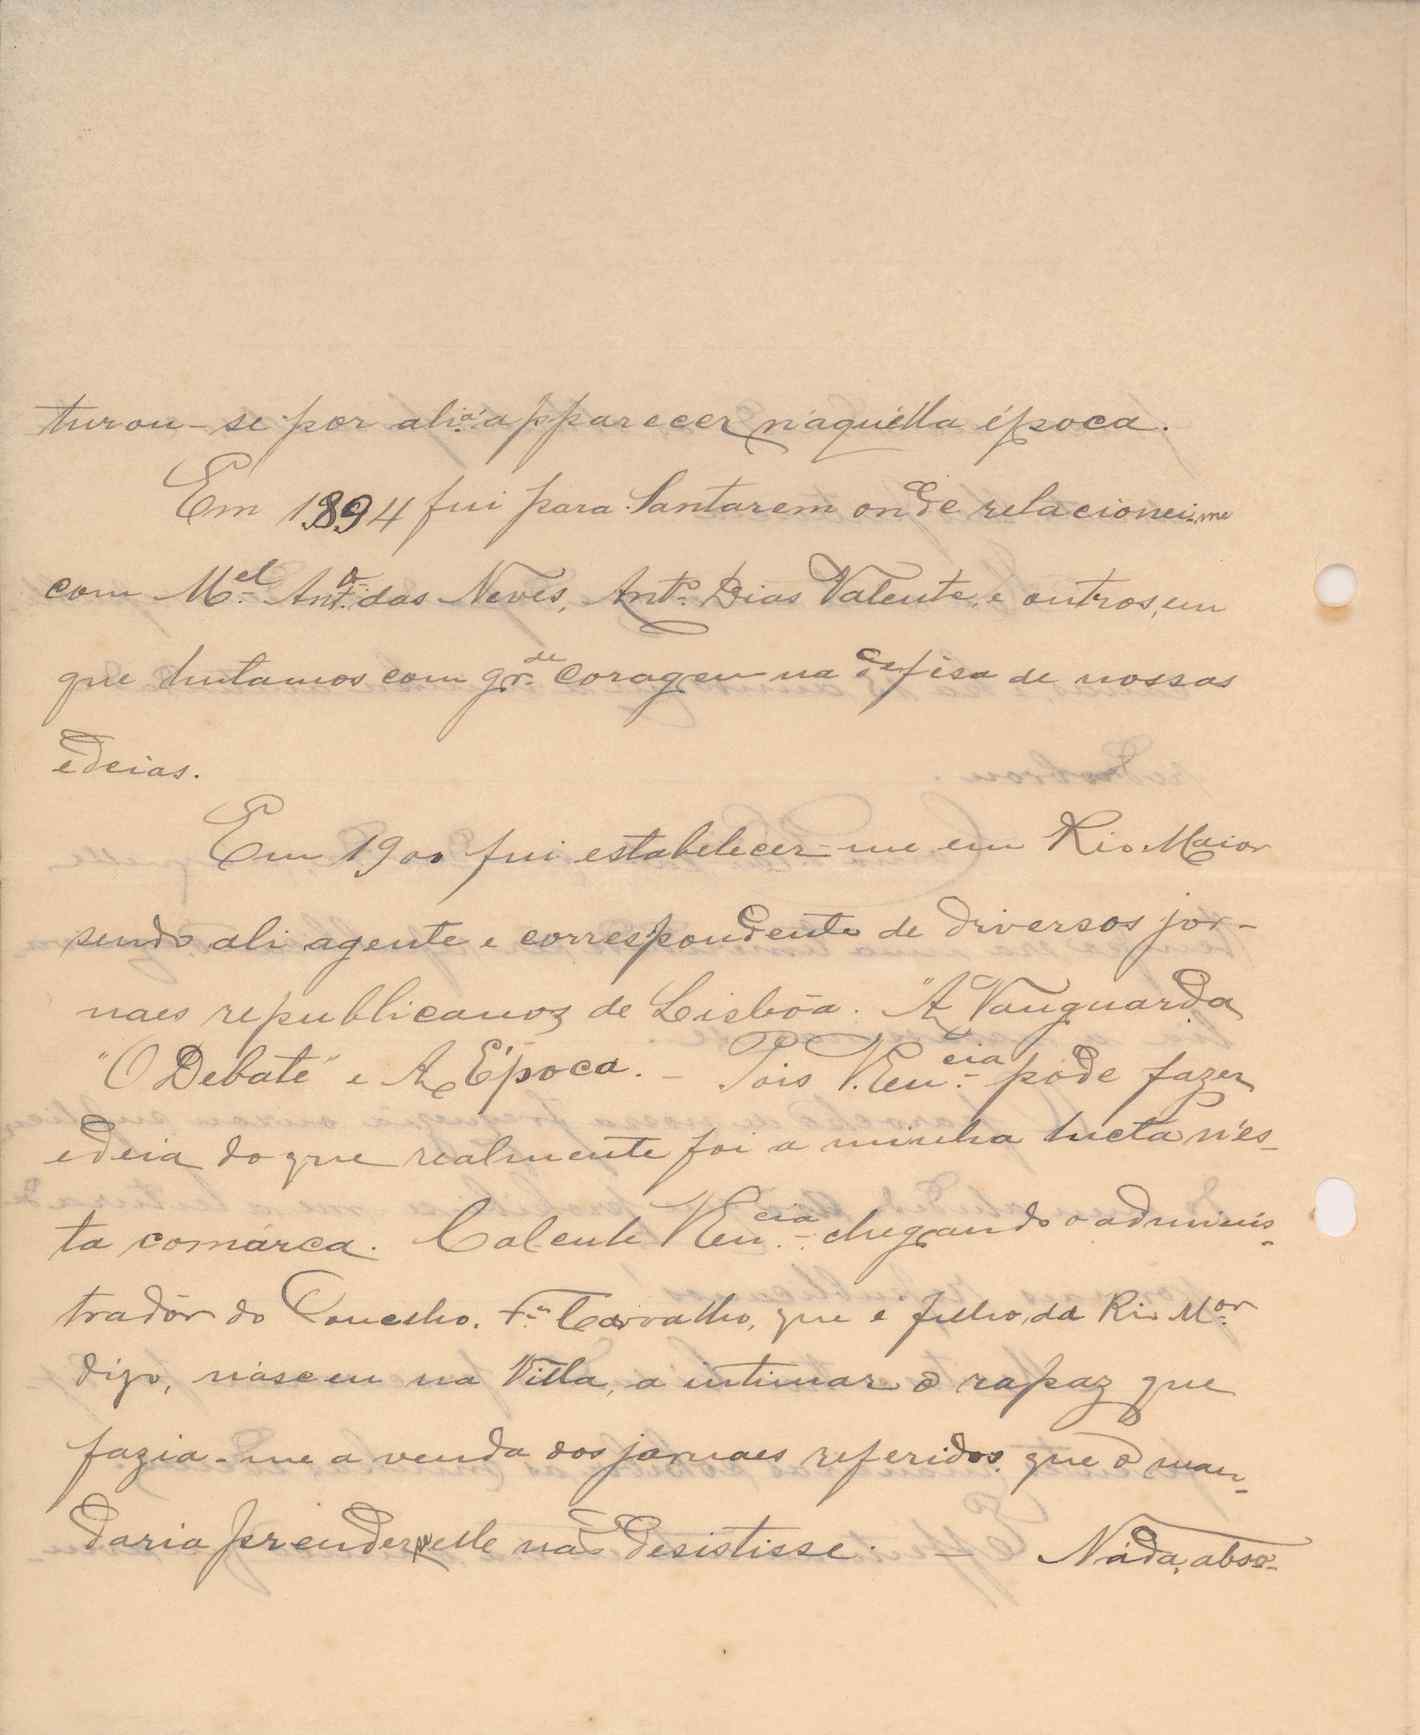 turou-se por ali a apparecer n'aquella época.
Em 1894 fui para Santarem onde relacionei-me
com Mel Antº das Neves, Antº Dias Valente, e outros, em
que luctamos com gr.de coragem na defêsa de nossas
edeias.
Em 1900 fui estabelecer-me em Rio Maior
sendo ali agente e correspondente de diversos jor-
naes republicanos de Lisbôa. "A Vanguarda
"O Debate" e A Época. – Pois V. Em.cia póde fazer
edeia do que realmente foi a minha lucta n'es-
ta comárca. Calcule V Em.cia chegando o adminis-
tradôr do Concelho. Carvalho, que é filho da Rio M.or
digo, násceu na Villa, a intimar o rapaz que
fazia-me a venda dos jornaes referidos que o man-
daria prender elle não desistisse. – Náda, abso-